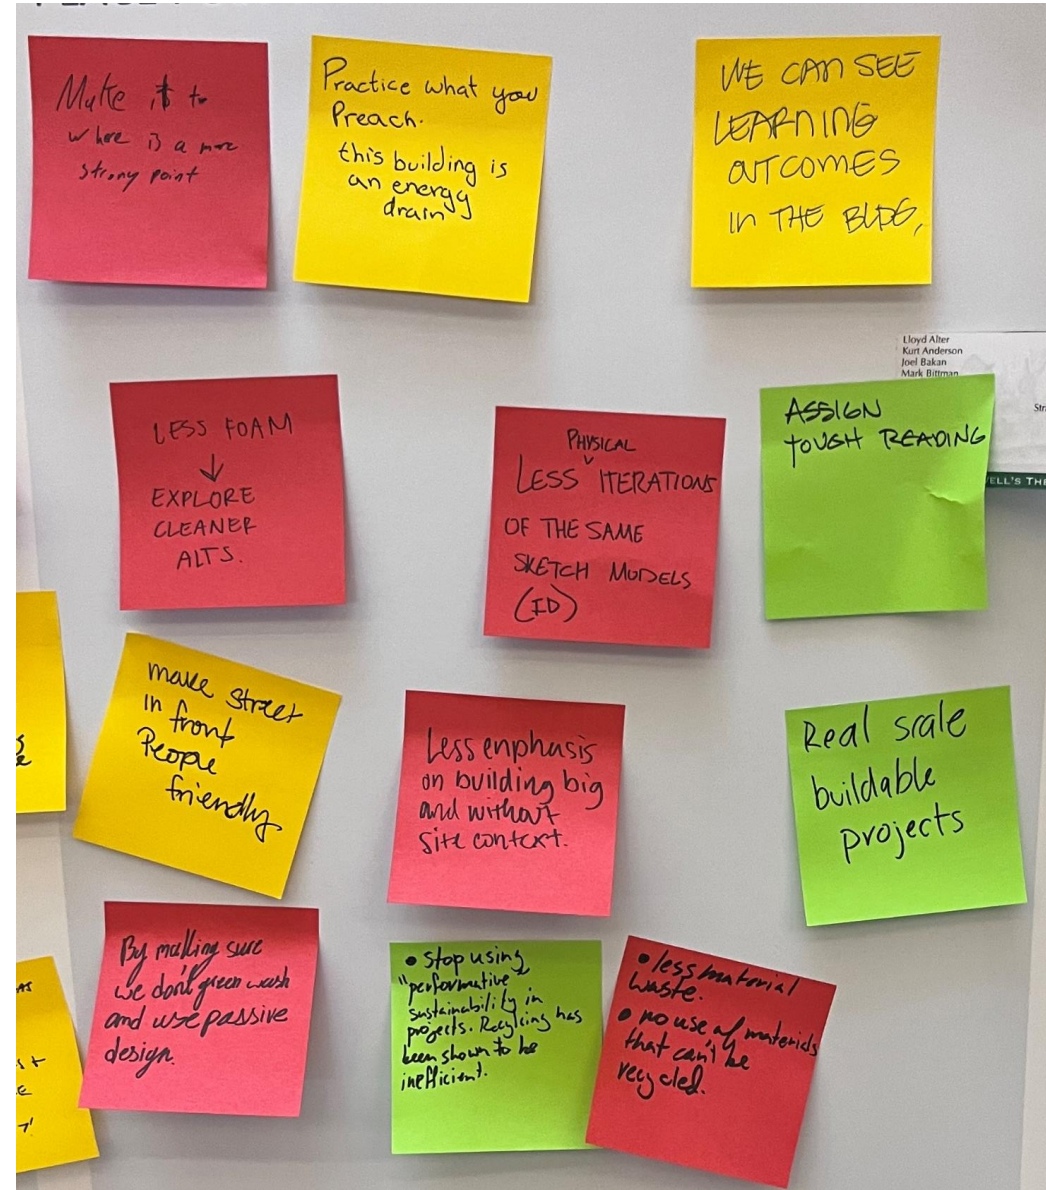 Make it to
where is a more
strong point
Practice what you
Preach.
this building is
an energy
drain
WE CAN SEE
LEARNING
OUTCOMES
IN THE BLDG,
Lloyd Alter
Kurt Anderson
Joel Bakan
Mark Bittman
Str
ELL'S THE
LESS FOAM
↓
EXPLORE
CLEANER
ALTS.
PHYSICAL
LESS ˅ ITERATIONS
OF THE SAME
SKETCH MODELS
(ID)
ASSIGN
TOUGH READING
make Street
in front
People
friendly
Less enphasis
on building big
and without
site context.
Real scale
buildable
projects
By making sure
we don't green wash
and use passive
design.
• stop using
"performative"
sustainability in
projects. Recylcing has
been shown to be
inefficient.
• less material
waste.
• no use of materials
that can't be
recycled.